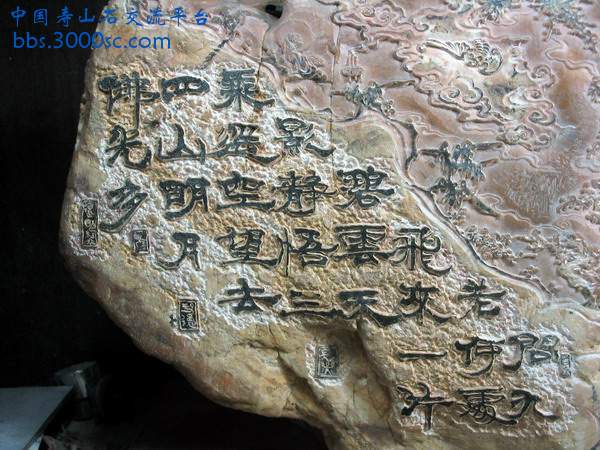 中国寿山石交流平台
bbs.3000sc.com
問九
老何處
飛來一片
碧雲天
影靜悟三
乘從空望去
四山明月
佛光多